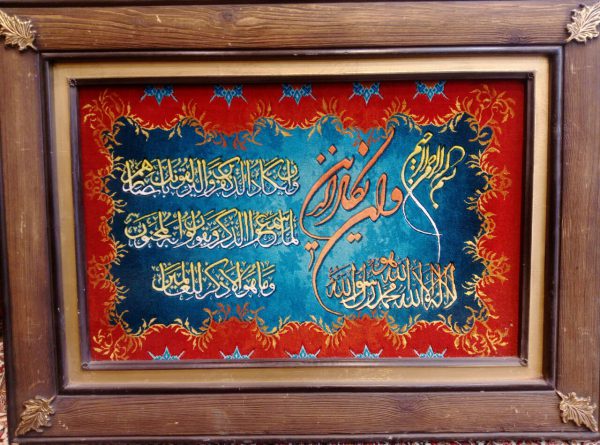 بسم الله الرحمن الرحیم
وان یکاد الذین
وان یکاد الذین کفروا لیزلقونک بابصارهم
لما سمعوا الذکر و یقولون انه لمجنون
و ما هو الا ذکر للعالمین
لا اله الا الله محمد رسول الله